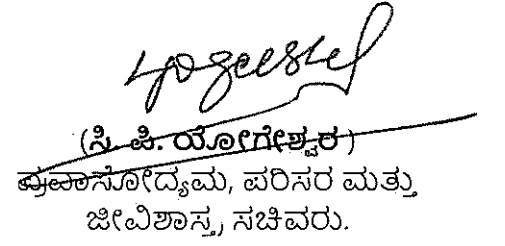 (ಸಿ. ಪಿ. ಯೋಗೇಶ್ವರ)
ಪ್ರವಾಸೋದ್ಯಮ, ಪರಿಸರ ಮತ್ತು
ಜೀವಿಶಾಸ್ತ್ರ ಸಚಿವರು.